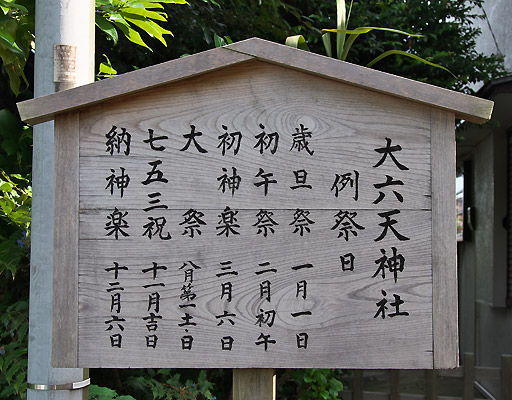 大六天神社
例祭日
歳旦祭 一月一日
初午祭 二月初午
初神楽 三月六日
大祭 八月第一土・日
七五三祝 十一月吉日
納神楽 十二月六日